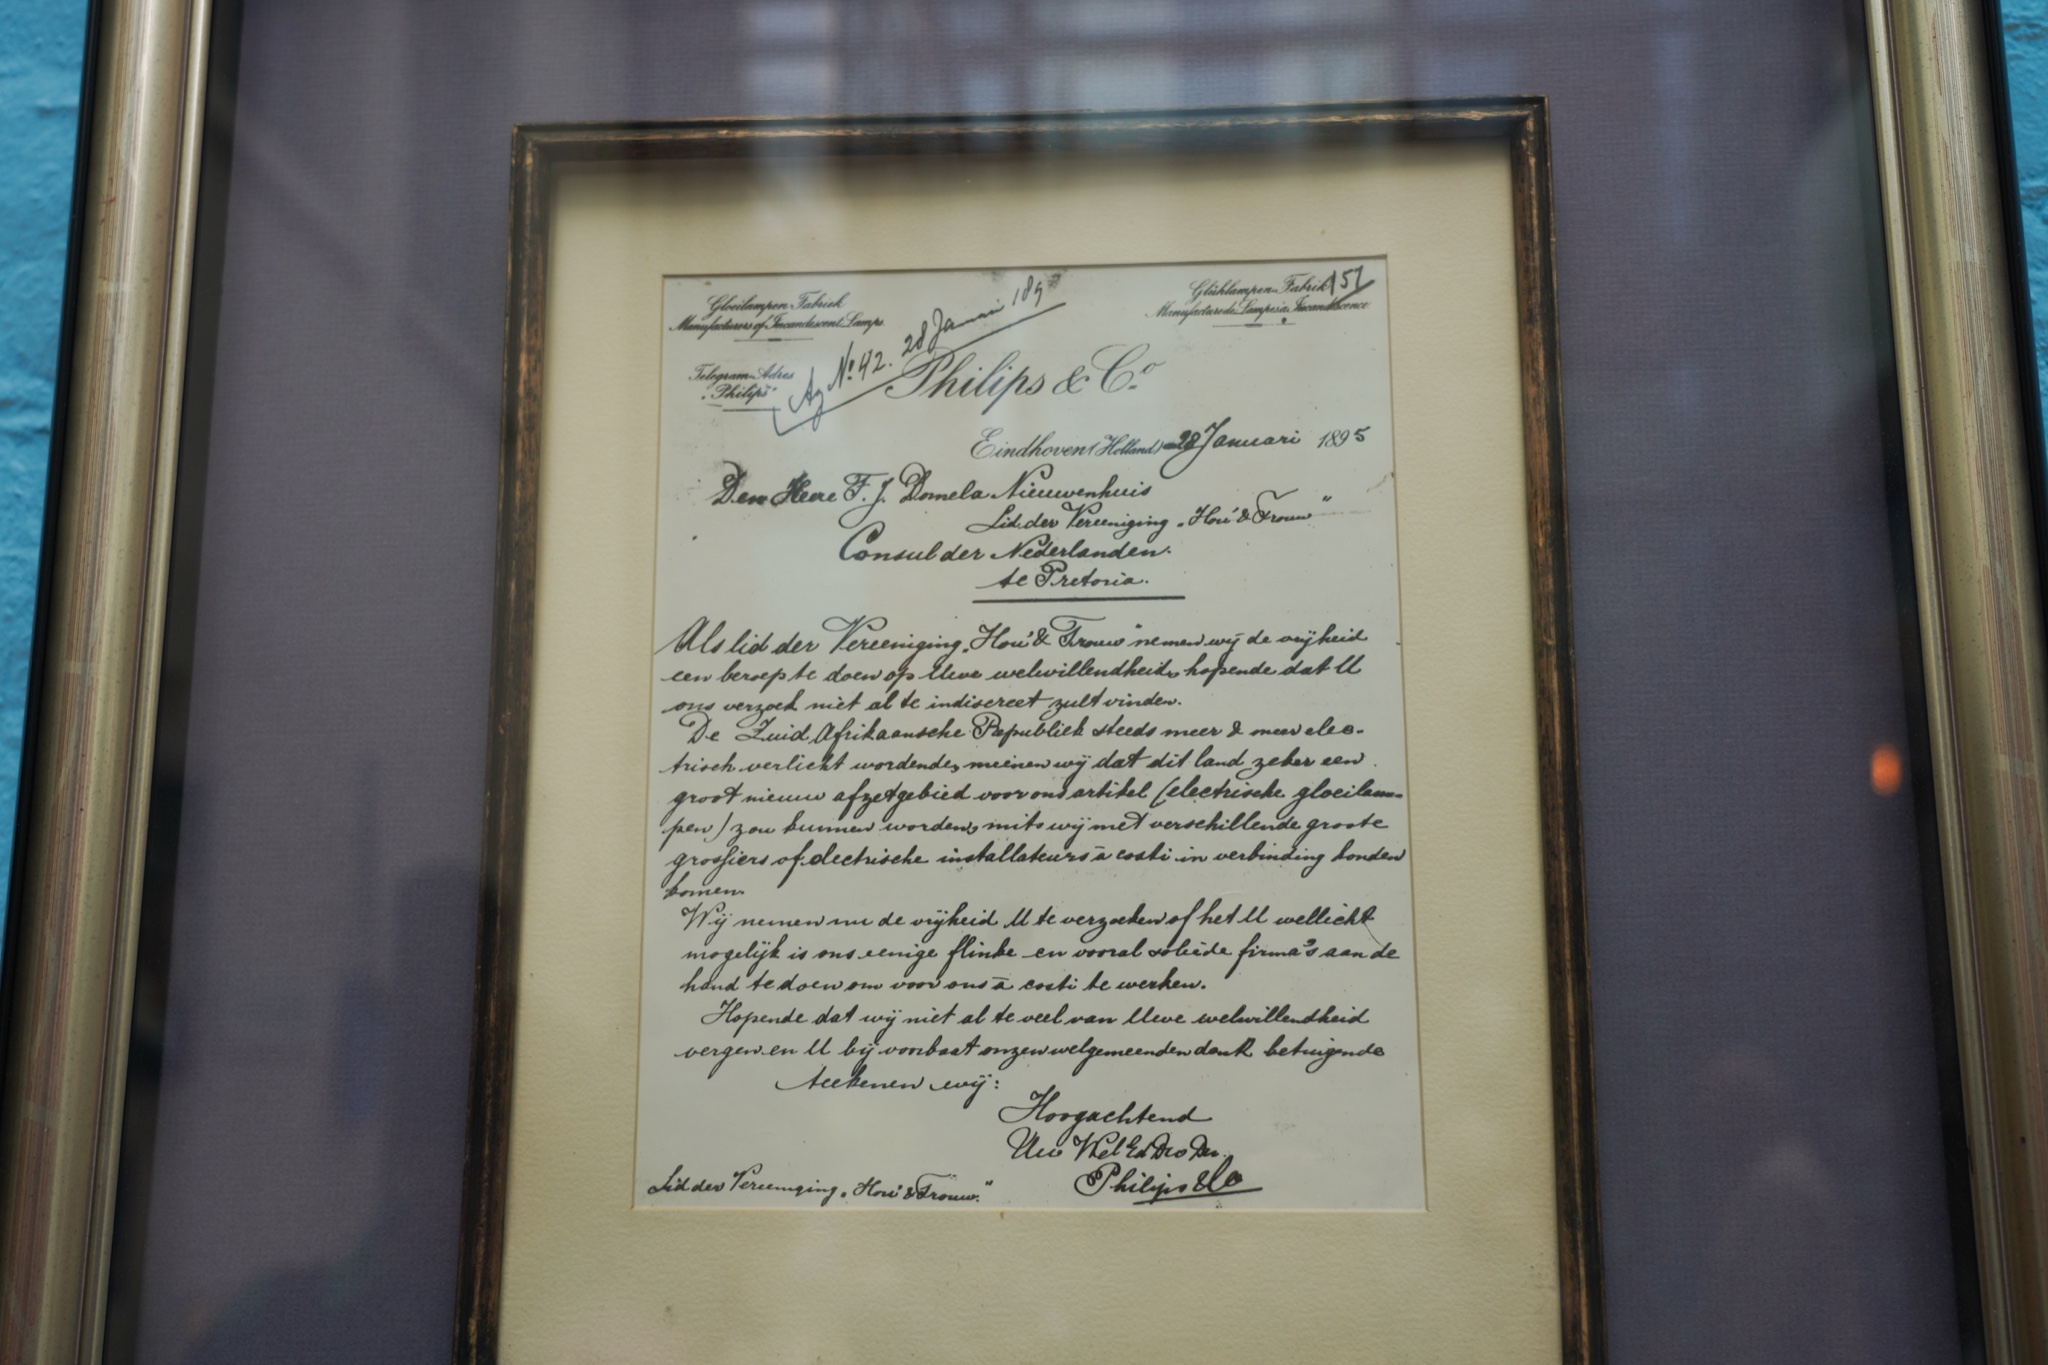 Gloeilampen-Fabriek
Manufacturers of Incandescent Lamps
Glühlampen-Fabrik 151
Manufacture de Lampes à Incandescence
Telegram-Adres
"Philips"
No. 42. 28 Januari 189
Philips & Co.
Eindhoven (Holland) 28 Januari 1895
Den Heere F. J. Domela Nieuwenhuis
Lid der Vereeniging „Hou' & Trouw"
Consul der Nederlanden.
te Pretoria.
Als lid der Vereeniging „Hou' & Trouw" nemen wij de vrijheid
een beroep te doen op Uwe welwillendheid, hopende dat U
ons verzoek niet al te indiscreet zult vinden.
De Zuid Afrikaansche Republiek steeds meer & meer elec-
trisch verlicht wordende, meenen wij dat dit land zeker een
groot nieuw afzetgebied voor ons artikel (electrische gloeilam-
pen) zou kunnen worden, mits wij met verschillende groote
grossiers of electrische installateurs à costi in verbinding konden
komen.
Wij nemen nu de vrijheid U te verzoeken of het U wellicht
mogelijk is ons eenige flinke en vooral soliede firma's aan de
hand te doen om voor ons à costi te werken.
Hopende dat wij niet al te veel van Uwe welwillendheid
vergen en U bij voorbaat onzen welgemeenden dank betuigende
teekenen wij:
Hoogachtend
Uw Wel Ed Dw Dr.
Philips & Co
Lid der Vereeniging „Hou' & Trouw."